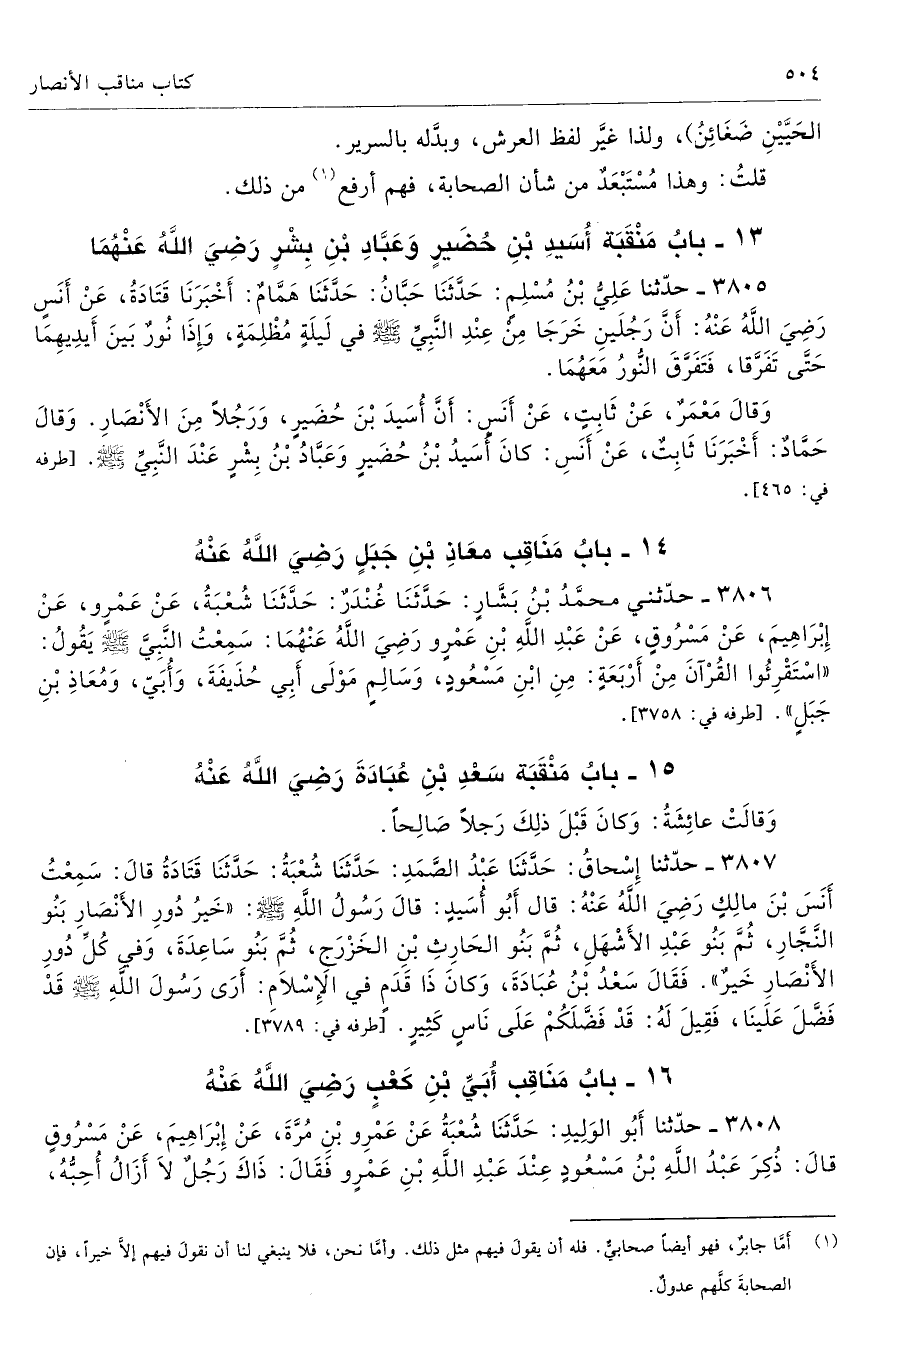 ٥٠٤ كتاب مناقب الأنصار
الحَيَّيْنِ ضَغَائِنُ)، ولذا غيَّر لفظ العرش، وبدَّله بالسرير.
قلتُ: وهذا مُسْتَبْعَدٌ من شأن الصحابة، فهم أرفع(١) من ذلك.
١٣ ـ بابُ مَنْقَبَة أُسَيدِ بْنِ حُضَيرٍ وَعَبَّادِ بْنِ بِشْرٍ رَضِيَ اللَّهُ عَنْهُمَا
٣٨٠٥ ـ حدّثنا عَلِيُّ بْنُ مُسْلِمٍ: حَدَّثَنَا حَبَّانُ: حَدَّثَنَا هَمَّامٌ: أَخْبَرَنَا قَتَادَةُ، عَنْ أَنَسٍ
رَضِيَ اللَّهُ عَنْهُ: أَنَّ رَجُلَينِ خَرَجَا مِنْ عِنْدِ النَّبِيِّ ﷺ في لَيلَةٍ مُظْلِمَةٍ، وَإِذَا نُورٌ بَينَ أَيدِيهِمَا
حَتَّى تَفَرَّقا، فَتَفَرَّقَ النُّورُ مَعَهُمَا.
وَقَالَ مَعْمَرٌ، عَنْ ثَابِتٍ، عَنْ أَنَسٍ: أَنَّ أُسَيدَ بْنَ حُضَيرٍ، وَرَجُلاً مِنَ الأَنْصَارِ. وَقالَ
حَمَّادٌ: أَخْبَرَنَا ثَابِتٌ، عَنْ أَنَسٍ: كانَ أُسَيدُ بْنُ حُضَيرٍ وَعَبَّادُ بْنُ بِشْرٍ عَنْدَ النَّبِيِّ ﷺ. [طرفه
في: ٤٦٥].
١٤ ـ بابُ مَنَاقِبِ معَاذِ بْنِ جَبَلٍ رَضِيَ اللَّهُ عَنْهُ
٣٨٠٦ ـ حدّثني محمَّدُ بْنُ بَشَّارٍ: حَدَّثَنَا غُنْدَرٌ: حَدَّثَنَا شُعْبَةُ، عَنْ عَمْرٍو، عَنْ
إِبْرَاهِيمَ، عَنْ مَسْرُوقٍ، عَنْ عَبْدِ اللَّهِ بْنِ عَمْرٍو رَضِيَ اللَّهُ عَنْهُمَا: سَمِعْتُ النَّبِيَّ ﷺ يَقُولُ:
«اسْتَقْرِئُوا القُرْآنَ مِنْ أَرْبَعَةٍ: مِنِ ابْنِ مَسْعُودٍ، وَسَالِمٍ مَوْلَى أَبِي حُذَيفَةَ، وَأُبَيّ، وَمُعَاذِ بْنِ
جَبَلٍ». [طرفه في: ٣٧٥٨].
١٥ ـ بابُ مَنْقَبَة سَعْدِ بْنِ عُبَادَةَ رَضِيَ اللَّهُ عَنْهُ
وَقالَتْ عائِشَةُ: وَكانَ قَبْلَ ذلِكَ رَجلاً صَالِحاً.
٣٨٠٧ ـ حدّثنا إِسْحاقُ: حَدَّثَنَا عَبْدُ الصَّمَدِ: حَدَّثَنَا شُعْبَةُ: حَدَّثَنَا قَتَادَةُ قالَ: سَمِعْتُ
أَنَسَ بْنَ مالِكٍ رَضِيَ اللَّهُ عَنْهُ: قال أَبُو أُسَيدٍ: قالَ رَسُولُ اللَّهِ ﷺ: «خَيرُ دُورِ الأَنْصَارِ بَنُو
النَّجَّارِ، ثُمَّ بَنُو عَبْدِ الأَشْهَلِ، ثُمَّ بَنُو الحَارِثِ بْنِ الخَزْرَجِ، ثُمَّ بَنُو سَاعِدَةَ، وَفي كُلِّ دُورِ
الأَنْصَارِ خَيرٌ». فَقَالَ سَعْدُ بْنُ عُبَادَةَ، وَكانَ ذَا قَدَمٍ في الإِسْلاَمِ: أَرَى رَسُولَ اللَّهِ ﷺ قَدْ
فَضَّلَ عَلَينَا، فَقِيلَ لَهُ: قَدْ فَضَّلَكُمْ عَلَى نَاسٍ كَثِيرٍ. [طرفه في: ٣٧٨٩].
١٦ ـ بابُ مَنَاقِبِ أُبَيِّ بْنِ كَعْبٍ رَضِيَ اللَّهُ عَنْهُ
٣٨٠٨ ـ حدّثنا أَبُو الوَلِيدِ: حَدَّثَنَا شُعْبَةُ عَنْ عَمْرِو بْنِ مُرَّةَ، عَنْ إِبْرَاهِيمَ، عَنْ مَسْرُوقٍ
قالَ: ذُكِرَ عَبْدُ اللَّهِ بْنُ مَسْعُودٍ عِنْدَ عَبْدِ اللَّهِ بْنِ عَمْرٍو فَقَالَ: ذَاكَ رَجُلٌ لاَ أَزَالُ أُحِبُّهُ،
(١) أمَّا جابرٌ، فهو أيضاً صحابيٌّ. فله أن يقولَ فيهم مثل ذلك. وأمَّا نحن، فلا ينبغي لنا أن نقولَ فيهم إلاَّ خيراً، فإن
الصحابةَ كلَّهم عدولٌ.